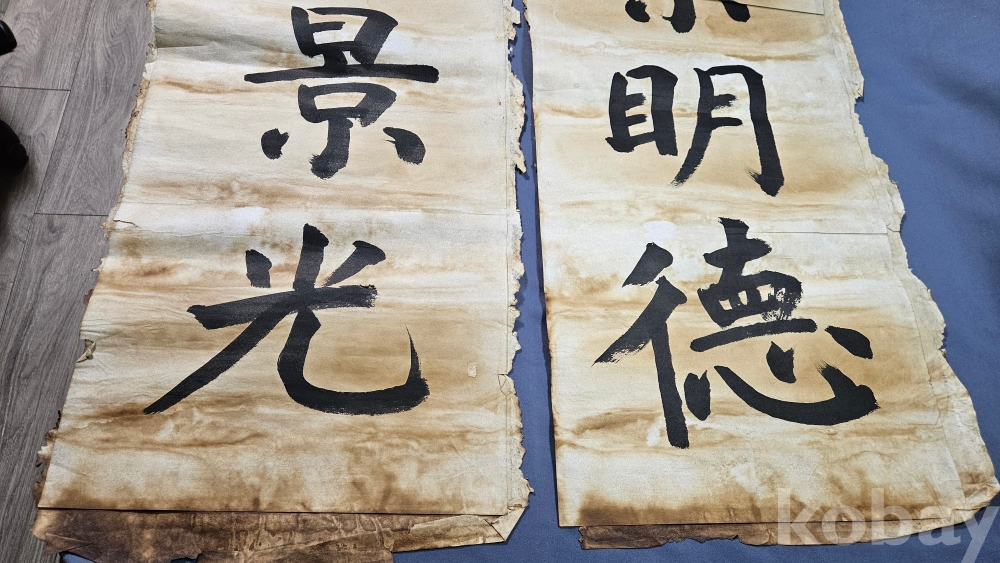 明德
景光
kobay